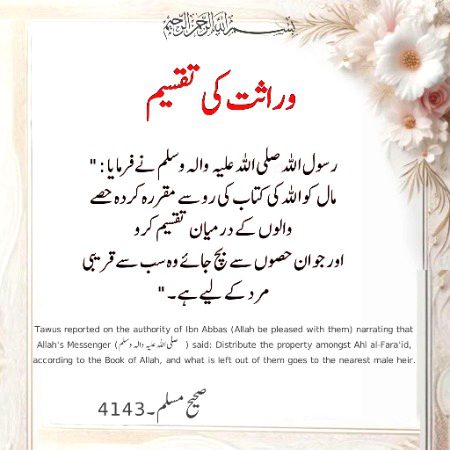 بسم الله الرحمن الرحيم
وراثت کی تقسیم
رسول اللہ صلی اللہ علیہ والہ وسلم نے فرمایا : "
مال کو اللہ کی کتاب کی رو سے مقررہ کردہ حصے
والوں کے درمیان تقسیم کرو
اور جو ان حصوں سے بچ جائے وہ سب سے قریبی
مرد کے لیے ہے۔"
Tawus reported on the authority of Ibn Abbas (Allah be pleased with them) narrating that
Allah's Messenger (صلی اللہ علیہ والہ وسلم) said: Distribute the property amongst Ahl al-Fara'id,
according to the Book of Allah, and what is left out of them goes to the nearest male heir.
صحیح مسلم۔4143